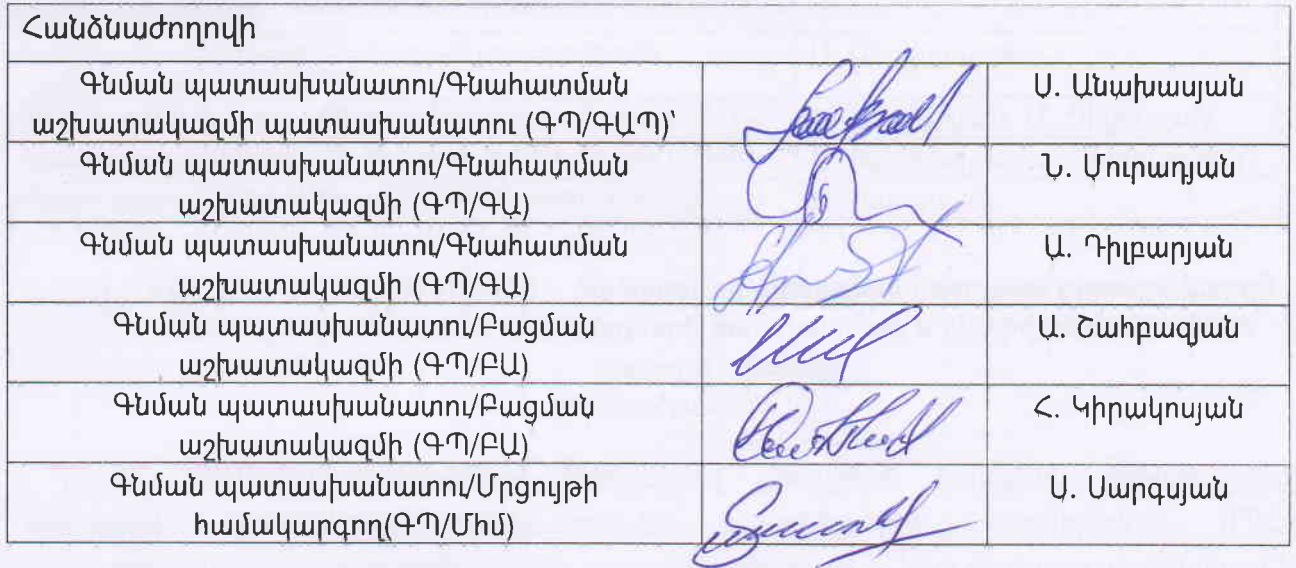 Հանձնաժողովի
Գնման պատասխանատու/Գնահատման
աշխատակազմի պատասխանատու (ԳՊ/ԳԱՊ)՝
Ս. Անախասյան
Գնման պատասխանատու/Գնահատման
աշխատակազմի (ԳՊ/ԳԱ)
Ն. Մուրադյան
Գնման պատասխանատու/Գնահատման
աշխատակազմի (ԳՊ/ԳԱ)
Ա. Դիլբարյան
Գնման պատասխանատու/Բացման
աշխատակազմի (ԳՊ/ԲԱ)
Ա. Շահբազյան
Գնման պատասխանատու/Բացման
աշխատակազմի (ԳՊ/ԲԱ)
Հ. Կիրակոսյան
Գնման պատասխանատու/Մրցույթի
համակարգող(ԳՊ/Մհմ)
Ս. Սարգսյան